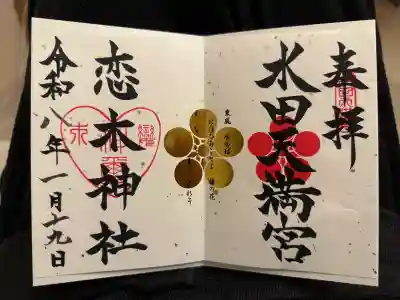 奉拝
水田天満宮
東風
梅の花
恋木神社
令和八年一月十九日